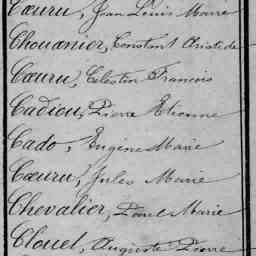 Cœuru, Jean Louis Marie
Chouanier, Constant Aristide
Cœuru, Celestin François
Cadiou, Pierre Etienne
Cado, Eugène Marie
Cœuru, Jules Marie
Chevalier, Marie
Clouet, Auguste Pierre